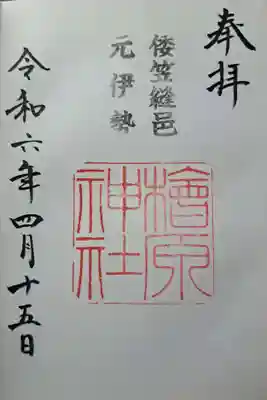 奉拝
倭笠縫邑
元伊勢
檜原神社
令和六年四月十五日